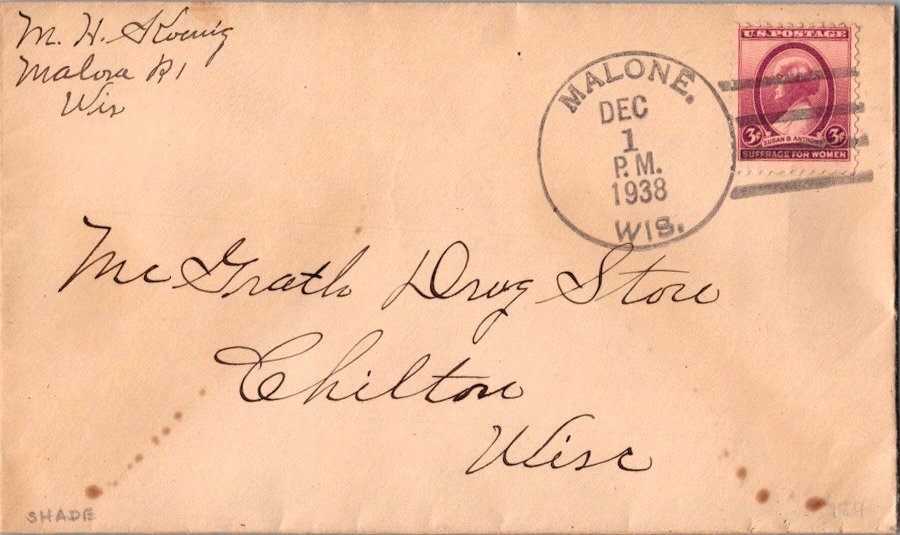 M. H. Koenig
Malone R1
Wis
MALONE.
DEC
1
P.M.
1938
WIS.
U.S. POSTAGE
3¢ 3¢
SUSAN B. ANTHONY
SUFFRAGE FOR WOMEN
McGrath Drug Store
Chilton
Wisc
SHADE